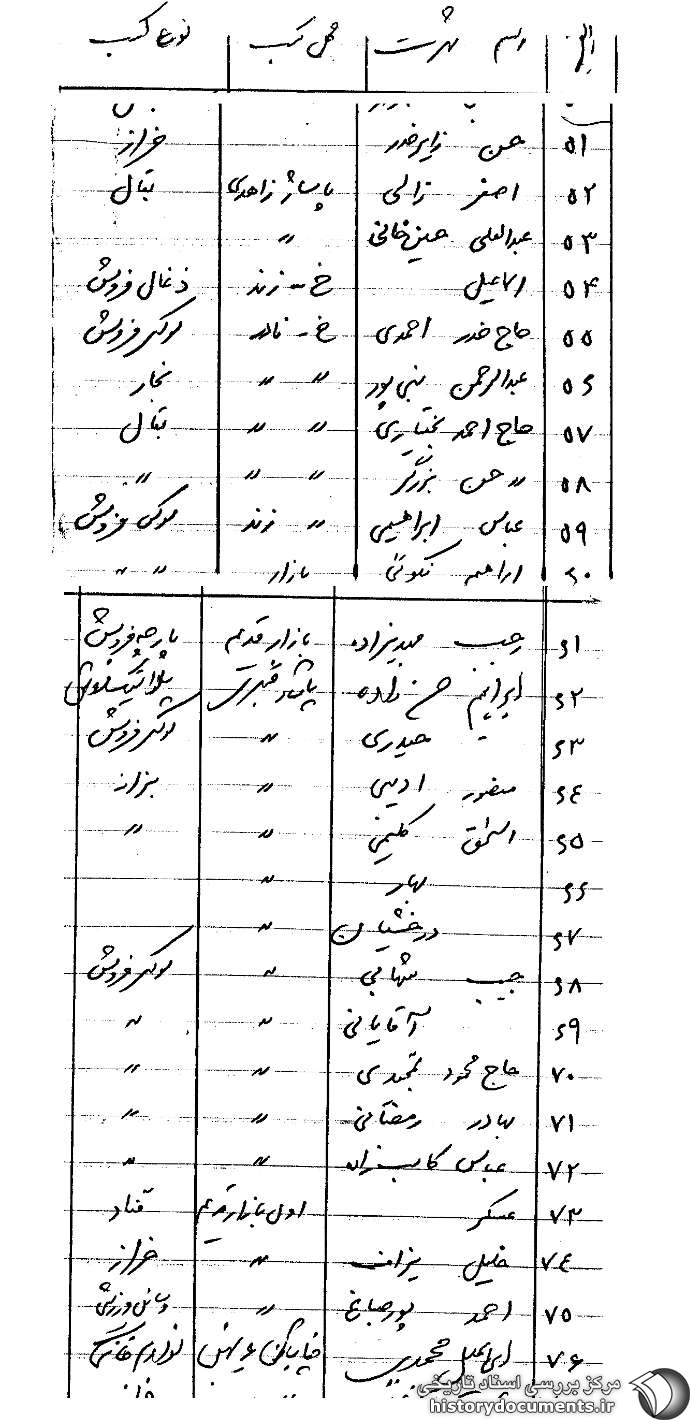 اسم شهرت محل کسب نوع کسب
۵۱ حسن خراز
۵۲ اصغر زالی پاساژ زاهدی بقال
۵۳ عبدالعلی حسین خانی "
۵۴ اسماعیل خ - زند ذغال فروش
۵۵ حاج خدر احمدی خ - نادر لوکس فروش
۵۶ عبدالرحمن نبی پور " " نجار
۵۷ حاج احمد بختیاری " " بقال
۵۸ " حسن برزگر " " "
۵۹ عباس ابراهیمی " زند لوکس فروش
۶۰ ابراهیم نکوئی بازار " "
۶۱ رجب بازار قدیم پارچه فروش
۶۲ ابراهیم پاساژ
۶۳ حیدری " لوکس فروش
۶۴ منصور ادیبی " بزاز
۶۵ اسحق کلیمی " "
۶۶ بهار "
۶۷ درخشیان "
۶۸ حبیب شهابی " لوکس فروش
۶۹ آقایانی " "
۷۰ حاج محمود تمجیدی " "
۷۱ بهادر رمضانی " "
۷۲ عباس کاسب زاده " "
۷۳ عسکر اول بازار قدیم قناد
۷۴ خلیل " خراز
۷۵ احمد پورصباغ " وسائل ورزشی
۷۶ اسماعیل محمدی لوازم خانگی
مرکز بررسی اسناد تاریخی
historydocuments.ir